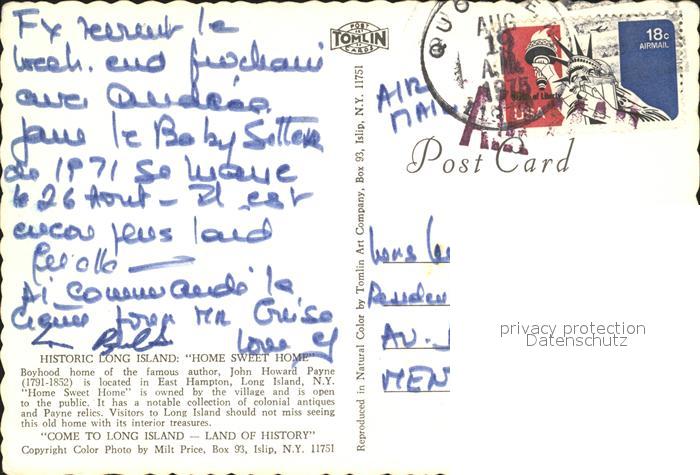 Fx revient le
week. end prochain
avec Andréa
Jane le Baby Sitter
de 1971 se marie
le 26 Aout - Il est
encore plus laid
qu'elle
Ai commandé la
pour Mr
Love
HISTORIC LONG ISLAND: "HOME SWEET HOME"
Boyhood home of the famous author, John Howard Payne
(1791-1852) is located in East Hampton, Long Island, N.Y.
"Home Sweet Home" is owned by the village and is open
to the public. It has a notable collection of colonial antiques
and Payne relics. Visitors to Long Island should not miss seeing
this old home with its interior treasures.
"COME TO LONG ISLAND — LAND OF HISTORY"
Copyright Color Photo by Milt Price, Box 93, Islip, N.Y. 11751
POST
TOMLIN
CARDS
Reproduced in Natural Color by Tomlin Art Company, Box 93, Islip, N.Y. 11751
AUG
19
AM
1975
18c
AIRMAIL
USA
AIR
MAIL
Post Card
AV.
MEN
privacy protection
Datenschutz